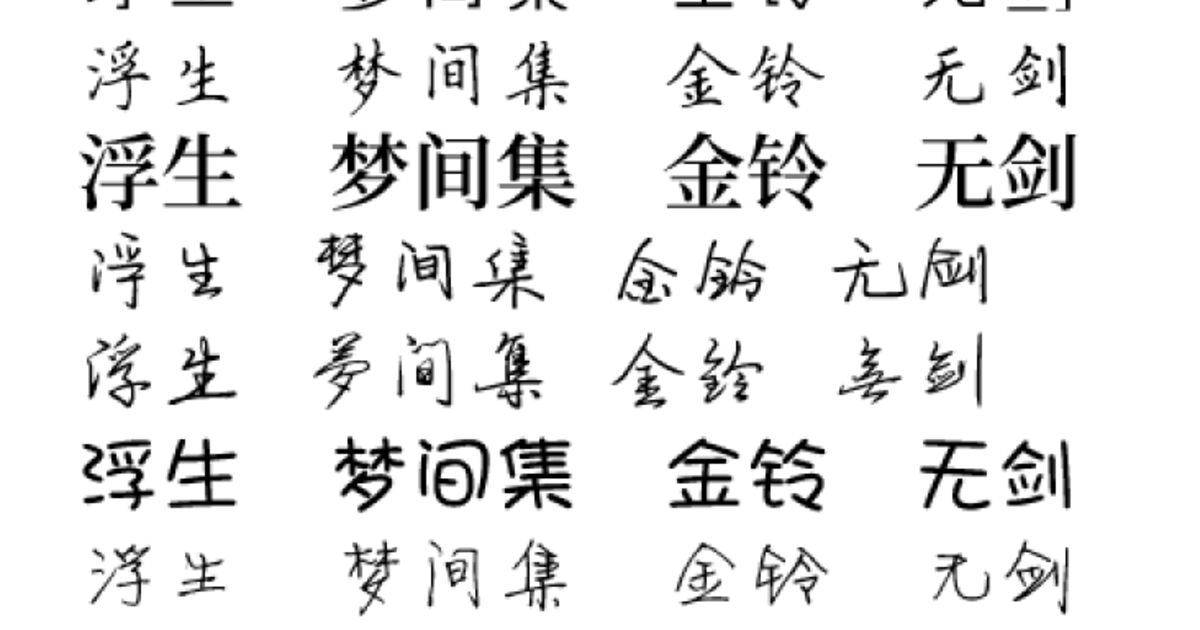 浮生 梦间集 金铃 无剑
浮生 梦间集 金铃 无剑
浮生 梦间集 金铃 无剑
浮生 夢间集 金铃 無剑
浮生 梦间集 金铃 无剑
浮生 梦间集 金铃 无剑